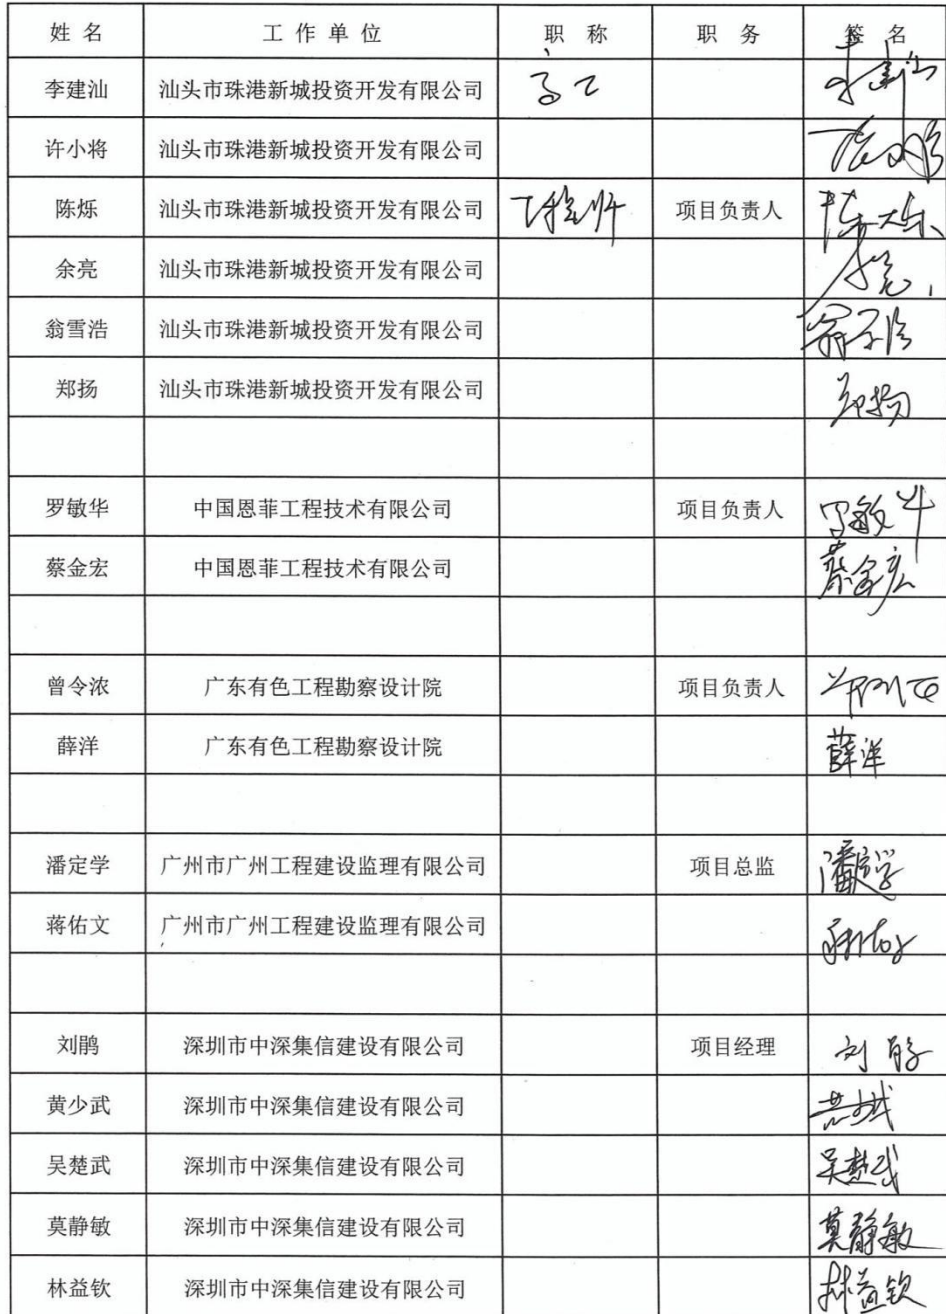 姓 名 工 作 单 位 职 称 职 务 签 名
李建汕 汕头市珠港新城投资开发有限公司 高工 李建汕
许小将 汕头市珠港新城投资开发有限公司
陈烁 汕头市珠港新城投资开发有限公司 工程师 项目负责人 陈烁
余亮 汕头市珠港新城投资开发有限公司 余亮
翁雪浩 汕头市珠港新城投资开发有限公司 翁雪浩
郑扬 汕头市珠港新城投资开发有限公司 郑扬
罗敏华 中国恩菲工程技术有限公司 项目负责人 罗敏华
蔡金宏 中国恩菲工程技术有限公司 蔡金宏
曾令浓 广东有色工程勘察设计院 项目负责人
薛洋 广东有色工程勘察设计院 薛洋
潘定学 广州市广州工程建设监理有限公司 项目总监 潘定学
蒋佑文 广州市广州工程建设监理有限公司 蒋佑文
刘鹃 深圳市中深集信建设有限公司 项目经理 刘鹃
黄少武 深圳市中深集信建设有限公司 黄少武
吴楚武 深圳市中深集信建设有限公司 吴楚武
莫静敏 深圳市中深集信建设有限公司 莫静敏
林益钦 深圳市中深集信建设有限公司 林益钦